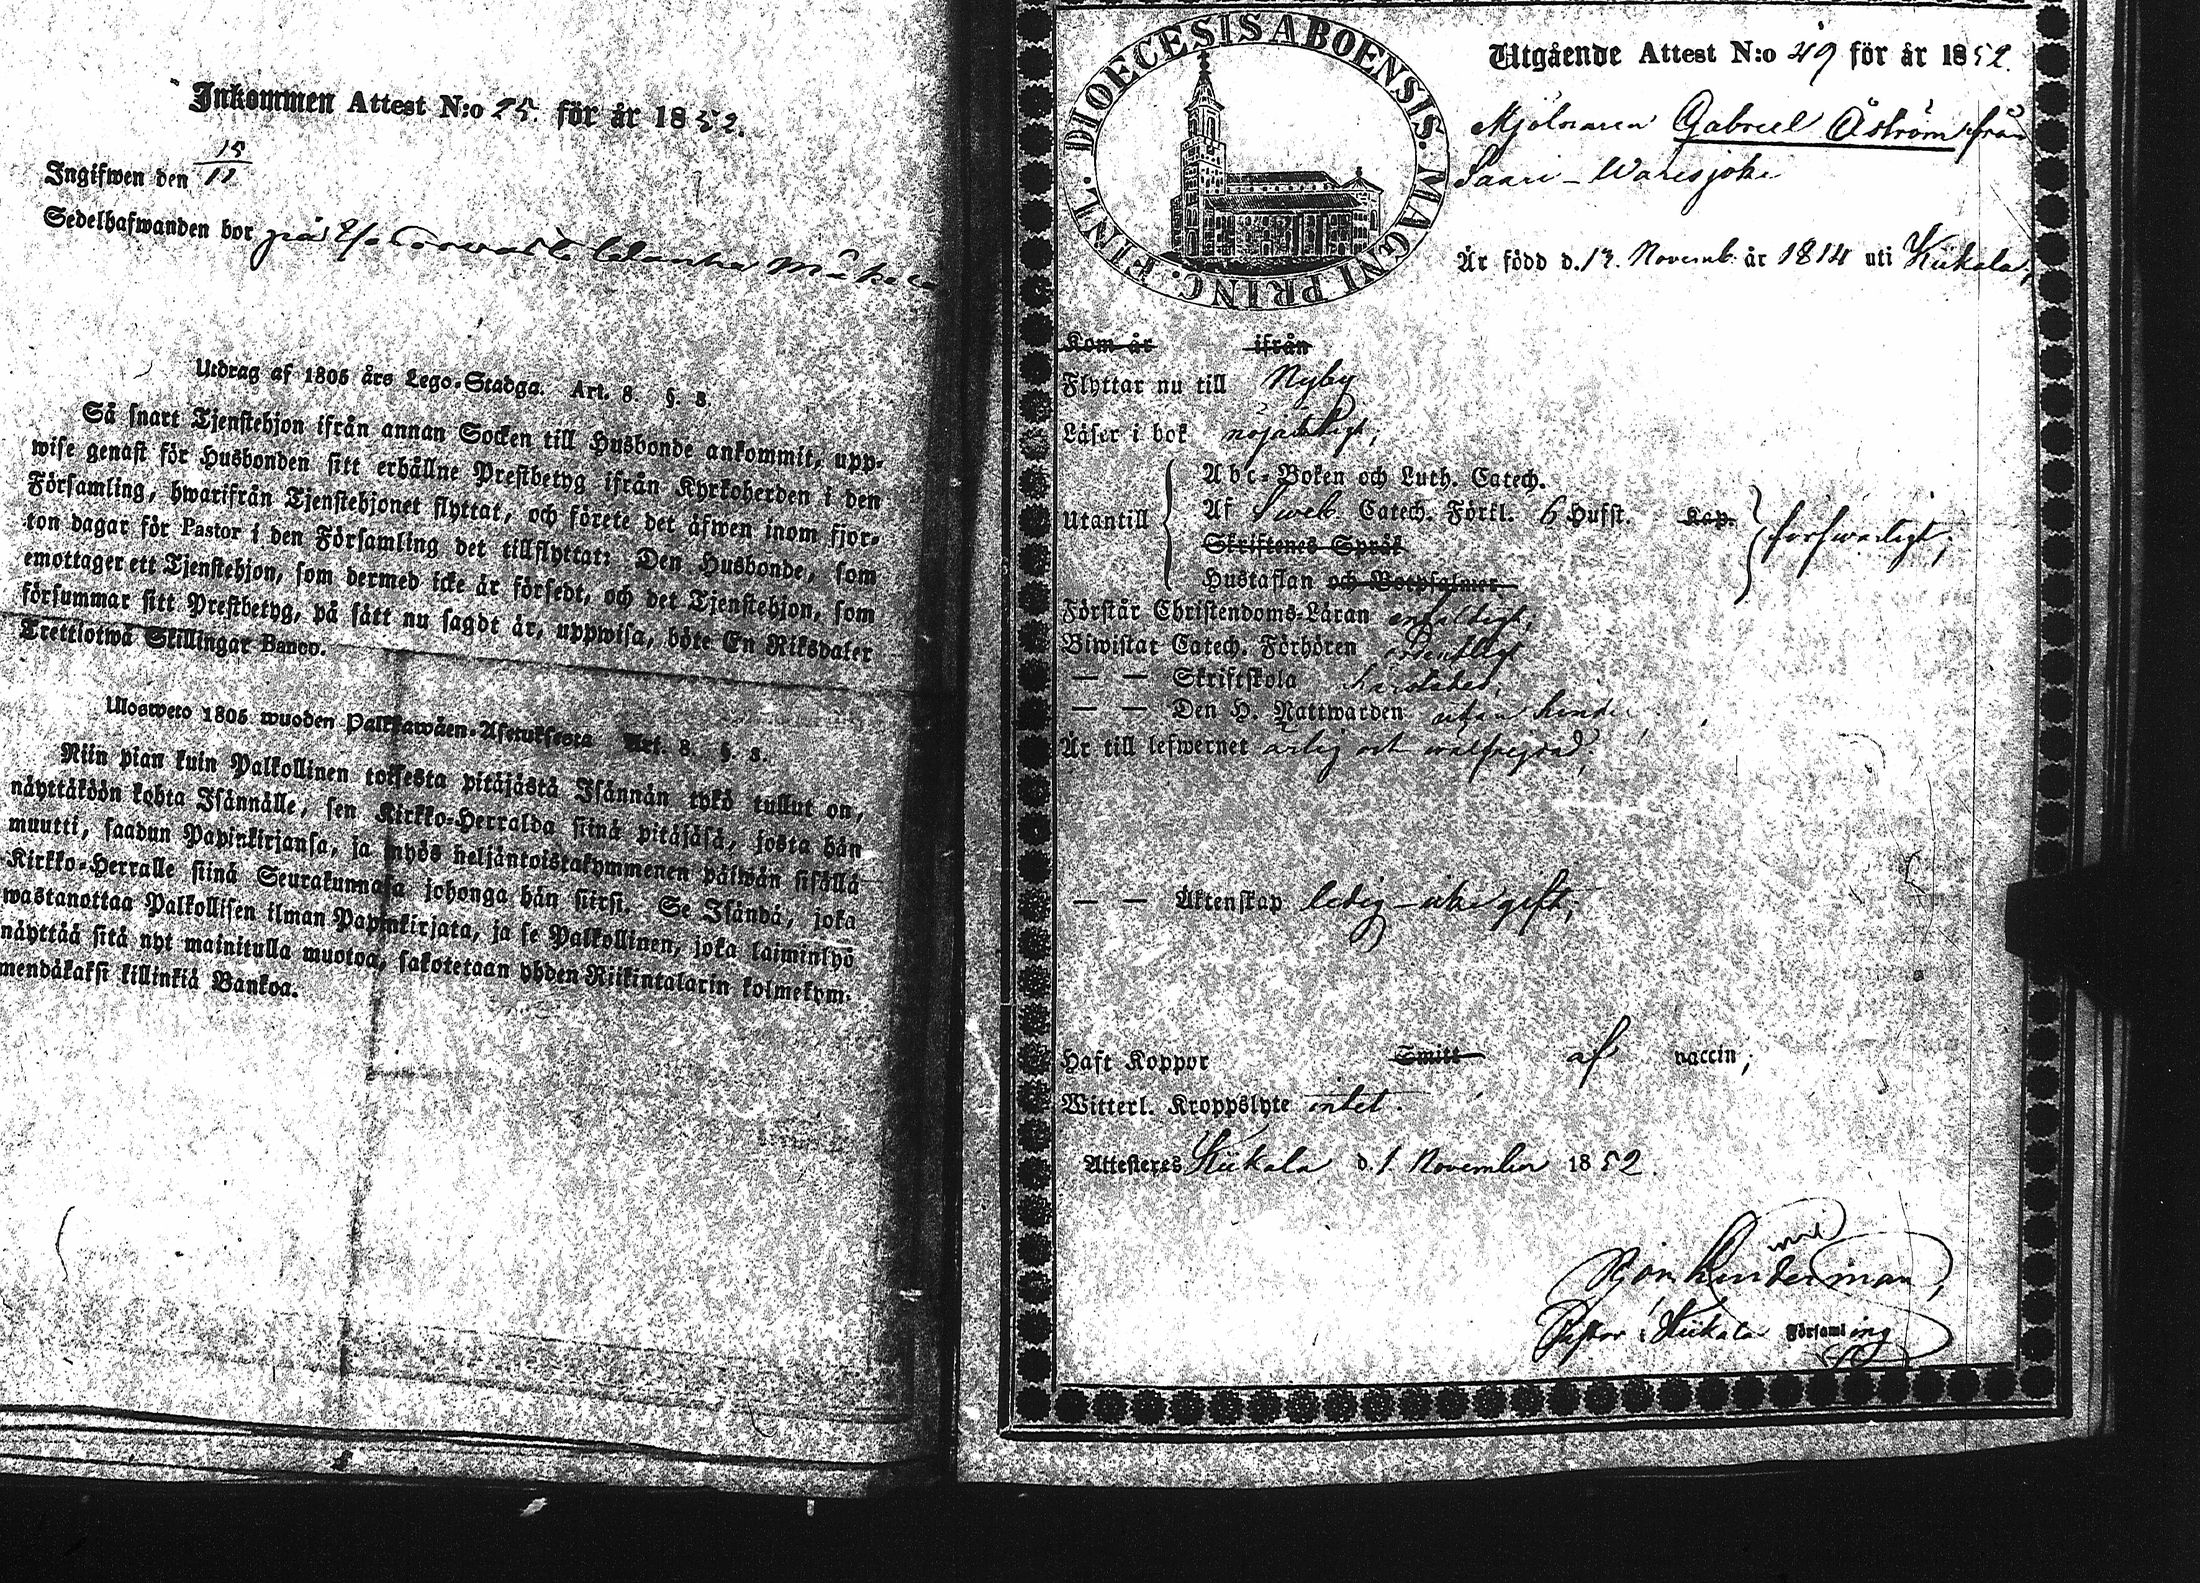 Inkommen Attest N:o 25. för år 1852.
Ingifwen den 15/11
Sedelhafwanden bor på
Utdrag af 1805 års Lego-Stadga. Art. 8. §. 8.
Så snart Tjenstehjon ifrån annan Socken till Husbonde ankommit, upp-
wise genast för Husbonden sitt erhållne Prestbetyg ifrån Kyrkoherden i den
Församling, hwarifrån Tjenstehjonet flyttat, och förete det äfwen inom fjor-
ton dagar för Pastor i den Församling det tillflyttat: Den Husbonde, som
emottager ett Tjenstehjon, som dermed icke är försedt, och det Tjenstehjon, som
försummar sitt Prestbetyg, på sätt nu sagdt är, uppwisa, böte En Riksdaler
Trettiotwå Skillingar Banco.
Ulosweto 1805 wuoden Palkkawäen-Asetuksesta Art. 8. §. 8.
Niin pian kuin Palkollinen toisesta pitäjästä Isännän tykö tullut on,
näyttäköön kohta Isännälle, sen Kirkko-Herralda siinä pitäjäsä, josta hän
muutti, saadun Papinkirjansa, ja myös neljäntoistakymmenen päiwän sisällä
Kirkko-Herralle siinä Seurakunnasa johonga hän siirsi. Se Isändä, joka
wastanottaa Palkollisen ilman Papinkirjata, ja se Palkollinen, joka laiminlyö
näyttää sitä nyt mainitulla muotoa, sakotetaan yhden Riikintalarin kolmekym-
mendäkaksi killinkiä Bankoa.
DIOECESIS ABOENSIS. MAGNI PRINC. FINL.
Utgående Attest N:o 49 för år 1852.
Mjölnaren Gabriel Åström från
Saari - Waresjoki
Är född d. 13. Novemb. år 1814 uti Kiikala;
Kom år ifrån
Flyttar nu till Nyby
Läser i bok nöjaktligt;
Utantill
Abc-Boken och Luth. Catech.
Af Sweb. Catech. Förkl. 6 Husst. Kap.
Skriftenes Språk
Hustaflan och Botpsalmer
försvarligt;
Förstår Christendoms-Läran enfaldigt;
Biwistar Catech. Förhören ordentligt
— — Skriftskola
— — Den H. Nattwarden utan hinder
Är till lefwernet ärlig och wälfrejdad,
— — Äktenskap ledig - icke gift;
Haft Koppor Smitt af vaccin;
Witterl. Kroppslyte intet.
Attesteres Kiikala d. 1 November 1852.
Pastor i Kiikala Församling